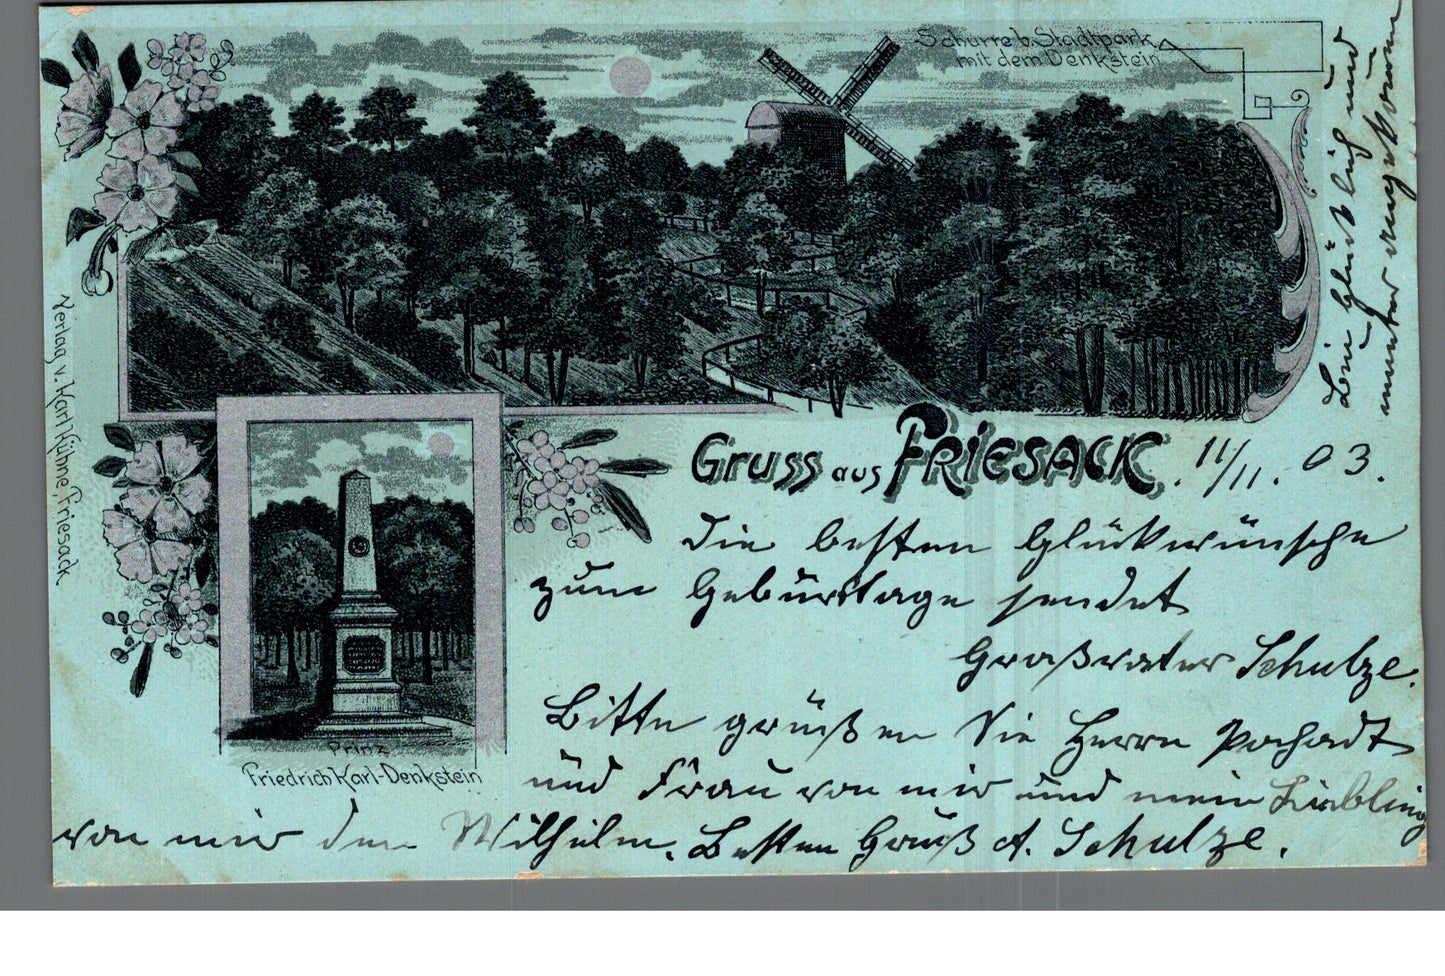 Schurre b. Stadtpark
mit dem Denkstein
Bin glücklich und
munter angekommen
Verlag v. Karl Kühne, Friesack
Gruss aus FRIESACK. 11/11. 03.
Die besten Glückwünsche
zum Geburtstage sendet
Großvater Schulze.
Bitte grüßen Sie Herrn
und Frau von mir und mein Liebling
von mir den Wilhelm. Besten Gruß A. Schulze.
Prinz
Friedrich Karl-Denkstein